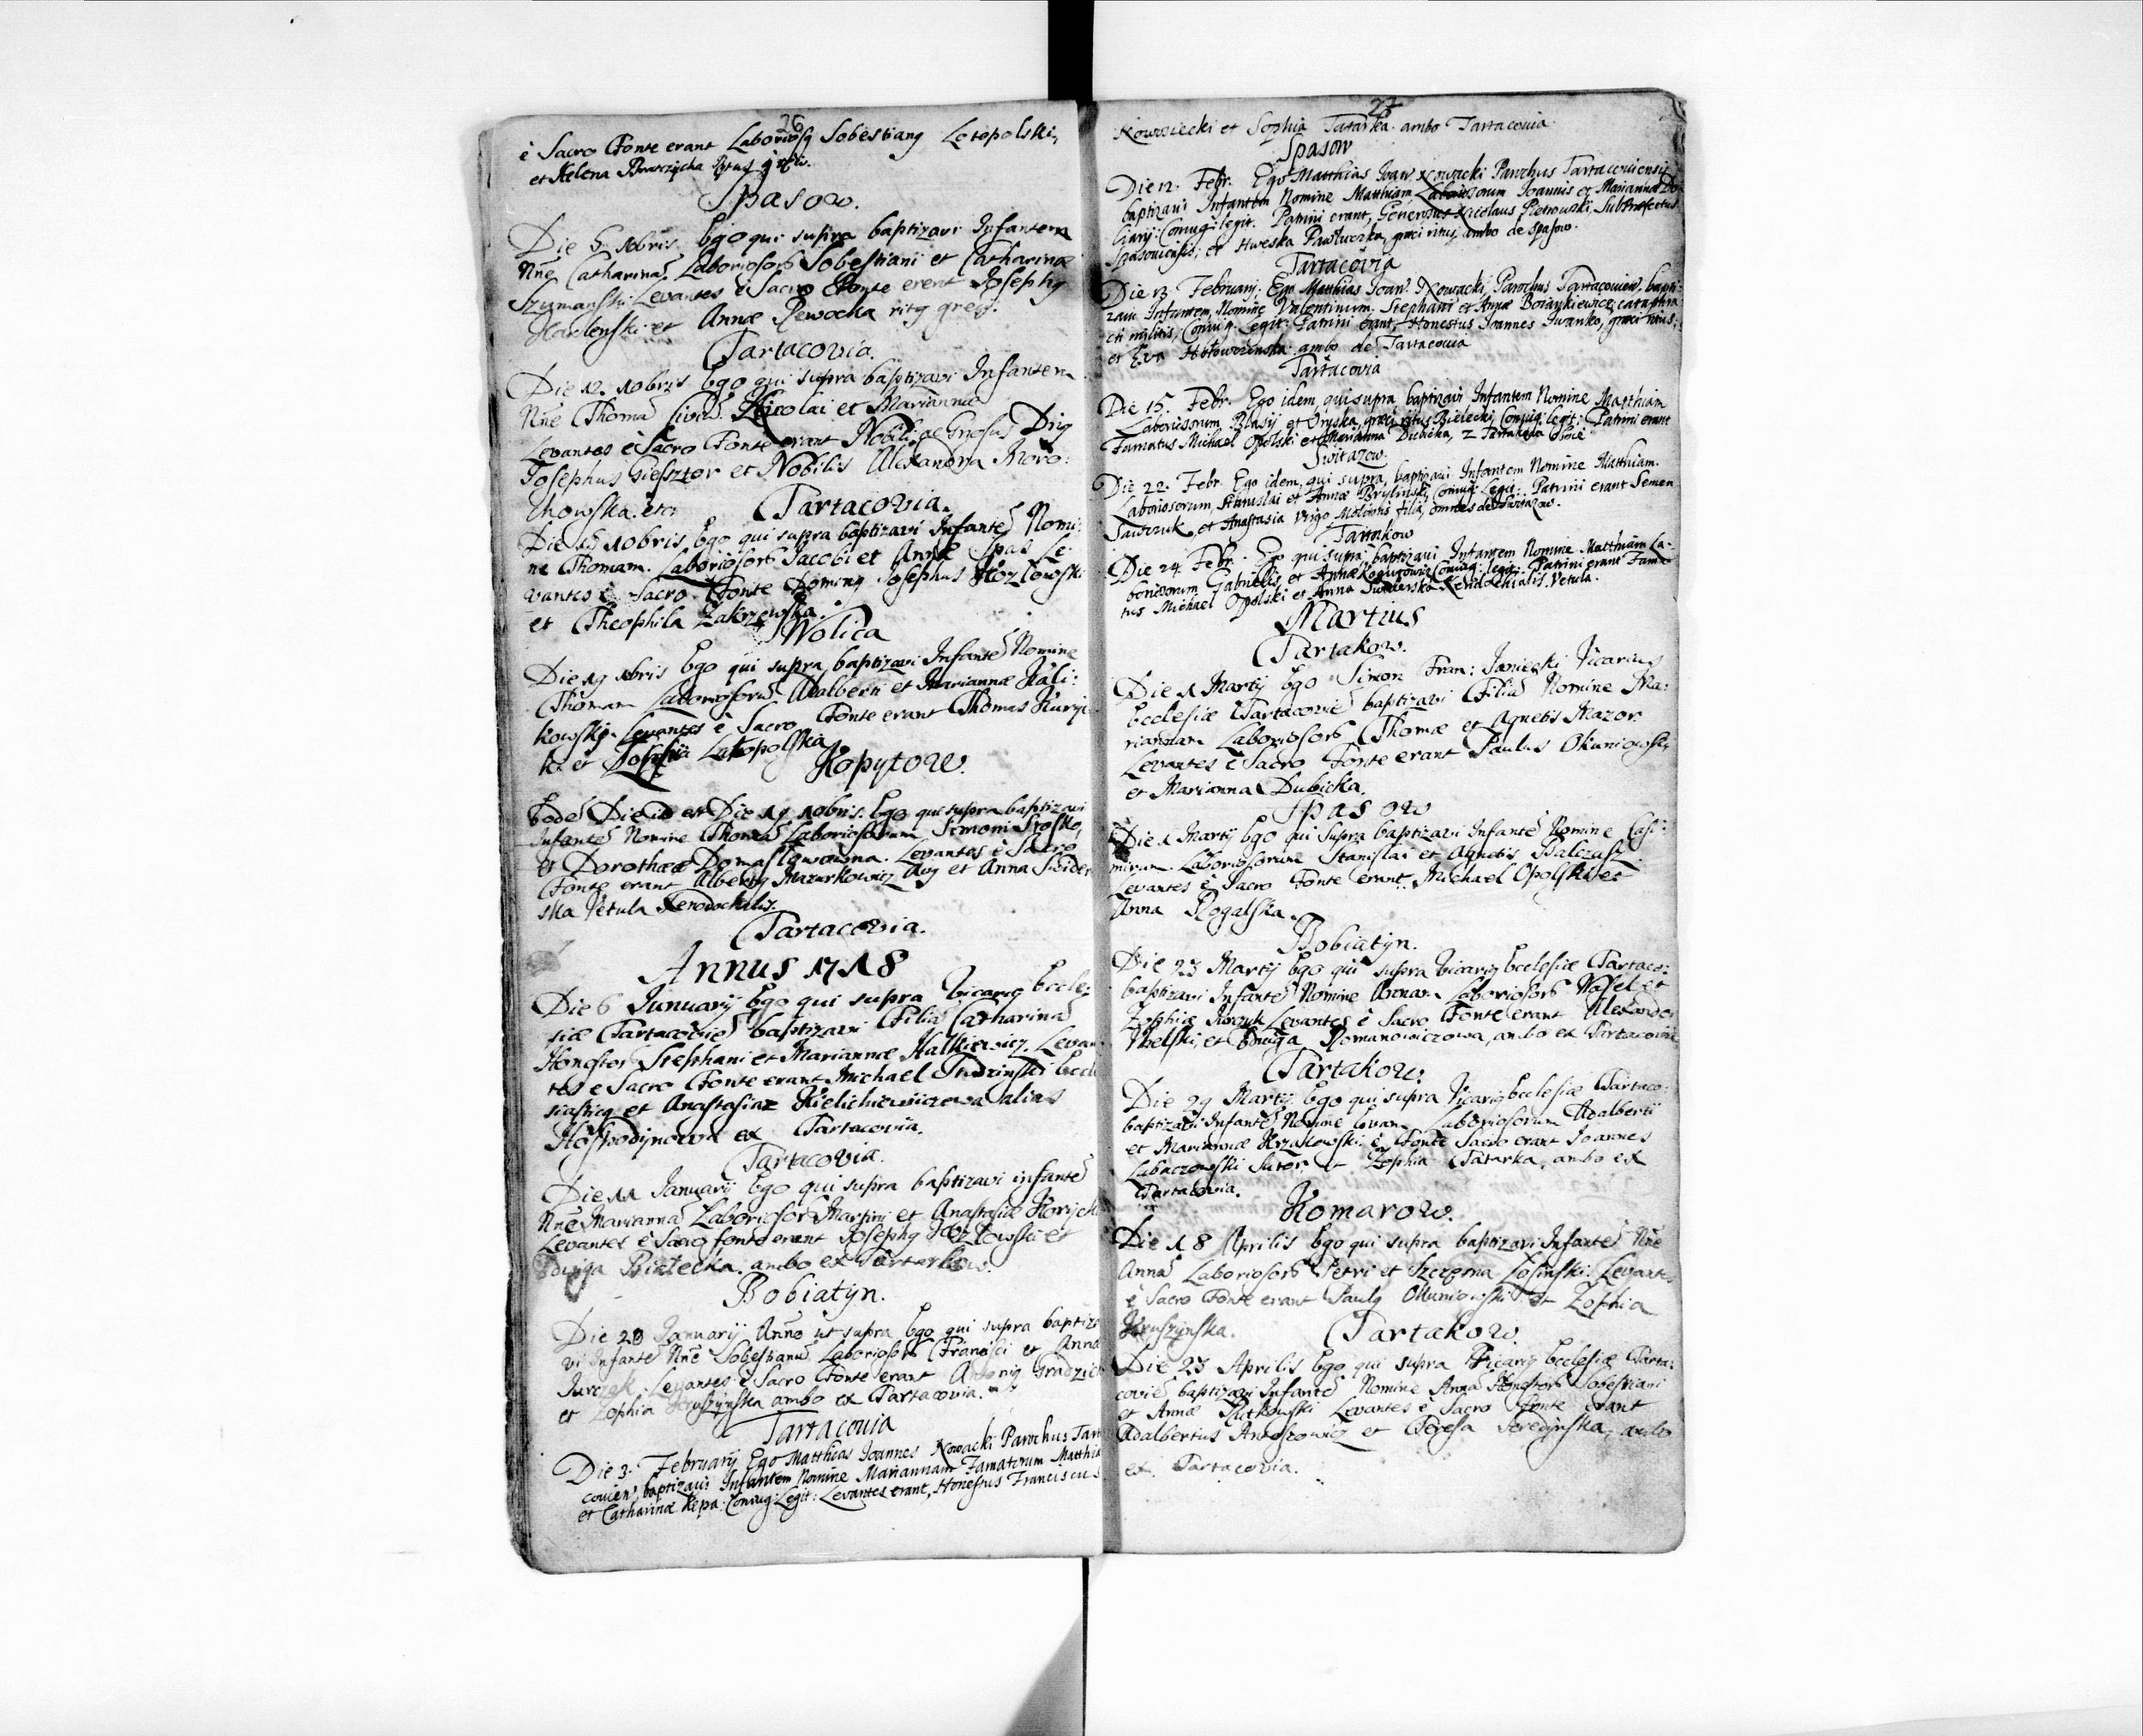 26
è Sacro Fonte erant Laboriosq Sobestianq Letopolski,
et Helena Ritus
Spasow.
Die 5 Xbris Ego qui supra baptizavi Infantem
Nne Catharina Laboriosor Sobestiani et Catharinæ
Szymanski. Levantes è Sacro Fonte erent Josephq
et Annæ Rewocka ritq greci.
Tartacovia.
Die 12. 10bris Ego qui supra baptizavi Infantem
Nne Thoma Nicolai et Mariannæ
Levantes è Sacro Fonte erant Nobilis ac Gnosus Dnq
Josephus Giesztor et Nobilis Alexandra Moro:
chowska. etc:
Tartacovia.
Die 15 10bris Ego qui supra baptizavi Infante Nomi:
ne Thomam. Laboriosor Jacobi et Annæ Spas Le:
vantes è Sacro Fonte Dominq Josephus Kozlowski
et Theophila Zakrzewska.
Wolica
Die 19 Xbris Ego qui supra baptizavi Infante Nomine
Thomam Laboriosoru Adalberti et Mariannæ Kali:
kowski. Levantes è Sacro Fonte erant Thomas
et Zophia Latopolska
Kopytow.
Eode Die id est Die 19 10bris. Ego qui supra baptizavi
Infante Nomine Thoma Laboriosorum Simoni
et Dorotheæ Levantes è Sacro
Fonte erant Albertq Mazurkowicz et Anna Swider
ska Vetula Xenodochalis.
Tartacovia.
Annus 1718
Die 6 Junuarij Ego qui supra Vicariq Eccle:
siæ Tartacovie baptizavi Filia Catharina
Honestor Stephani et Mariannæ Halkiewicz. Levan
tes e Sacro Fonte erant Michael Eccle
siasticq et Anastasiaz Kielichiewiczowa alias
Hospodynowa ex Tartacovia.
Tartacovia.
Die 11 Januarij Ego qui supra baptizavi infante
Nne Marianna Laboriosor Martini et Anastasiæ
Levantes è Sacro fonte erant Josephq Kozlowski et
Edviga Bialecka. ambo ex Tartakow.
Bobiatyn.
Die 20 Januarij Anno ut supra Ego qui supra baptiza
vi Infante Nne Sobestianu Laboriosor Francisci et Anna
Jurczak. Levantes è Sacro Fonte erant Antoniq
et Zophia ambo ex Tartacovia.
Tartacouia
Die 3. Februarij Ego Matthias Joannes Nowacki Parochus Tart
couien: baptizaui Infantem Nomine Mariannam Famatorum Matthia
et Catharinæ Repa. Coniug: Legit: Levantes erant, Honestus Franciscus
27
et Sophia Tatarka. ambo Tartacouia.
Spasow
Die 12. Febr. Ego Matthias Joan. Nowacki Parochus Tartacouiensis
baptizaui Infantem Nomine Matthiam, Laboriosorum Joannis et Mariannæ
Coniug: legit. Patrini erant, Generosus Nicolaus Pietrowski, SubPræfectus
Spasouiensis, et Hweska Pawluczka, græci ritus, ambo de Spasow.
Tartacovia
Die 13. Februarij. Ego Matthias Joan. Nowacki Parochus Tartacouien. bapti:
zaui Infantem, Nomine Valentinum. Stephani et Annæ cataphra
cti militis, Coniug: Legit: Patrini erant, Honestus Joannes Iwanko, græci ritus,
et Eva ambo de Tartacouia
Tartacovia
Die 15. Febr. Ego idem, qui supra baptizaui Infantem Nomine Matthiam
Laboriosorum Blasij et Oryska, græci ritus Bielecki, Coniug: legit: Patrini erant
Famatus Michael Opolski et Marianna Dubicka, z Tartakowa
Switazow.
Die 22. Febr. Ego idem, qui supra, baptizaui Infantem Nomine Matthiam.
Laboriosorum, Stanislai et Annæ Coniug: Legit: Patrini erant Semen
Sawczuk, et Anastasia Virgo filia, omnes de Switazow.
Tartakow
Die 24. Febr. Ego qui supra baptizaui Infantem Nomine Matthiam La-
boriosorum Gabrielis, et Annæ Coniug: legit: Patrini erant Fama
tus Michael Opolski et Anna Swiderska Xenodochialis. Vetula.
Martius
Tartakow.
Die 1 Martij Ego Simon Fran: Janiecki Vicariuq
Ecclesiæ Tartacovie baptizavi Filia Nomine Ma:
riannam Laboriosor Thomæ et Agnetis Mazor
Levantes è Sacro Fonte erant Paulus Okuniowski
et Marianna Dubicka.
Spasow
Die 1 Martij Ego qui supra baptizavi Infante Nomine Casi:
mirum. Laboriosorum Stanislai et Agnetis
Levantes è Sacro Fonte erant. Michael Opolski et
Anna Rogalska.
Bobiatyn.
Die 23 Martij Ego qui supra Vicariq Ecclesiæ Tartaco:
baptizavi Infante Nomine Annam. Laboriosor Wasel et
Zophiæ Levantes è Sacro Fonte erant Alexander
et Edviga Romanowiczowa, ambo ex Tartacovia
Tartakow:
Die 29 Martij. Ego qui supra Vicariq Ecclesiæ Tartaco:
baptizavi Infante Nomine Evam Laboriosorum Adalberti
et Mariannæ è Fonte Sacro erant Joannes
Lubaczowski Sutor, et Zophia Tatarka, ambo ex
Tartakovia.
Komarow.
Die 18 Aprilis Ego qui supra baptizavi Infante Nne
Anna Laboriosor Petri et Losinski. Levantes
è Sacro Fonte erant Paulq Okuniowski et Zophia
Kruszynska.
Tartakow.
Die 23 Aprilis Ego qui supra Vicariq Ecclesiæ Tarta:
covie, baptizavi Infante Nomine Anna Honestor Sobestiani
et Annæ Rutkowski Levantes è Sacro fonte erant
Adalbertus et Teresa ambo
ex Tartacovia.